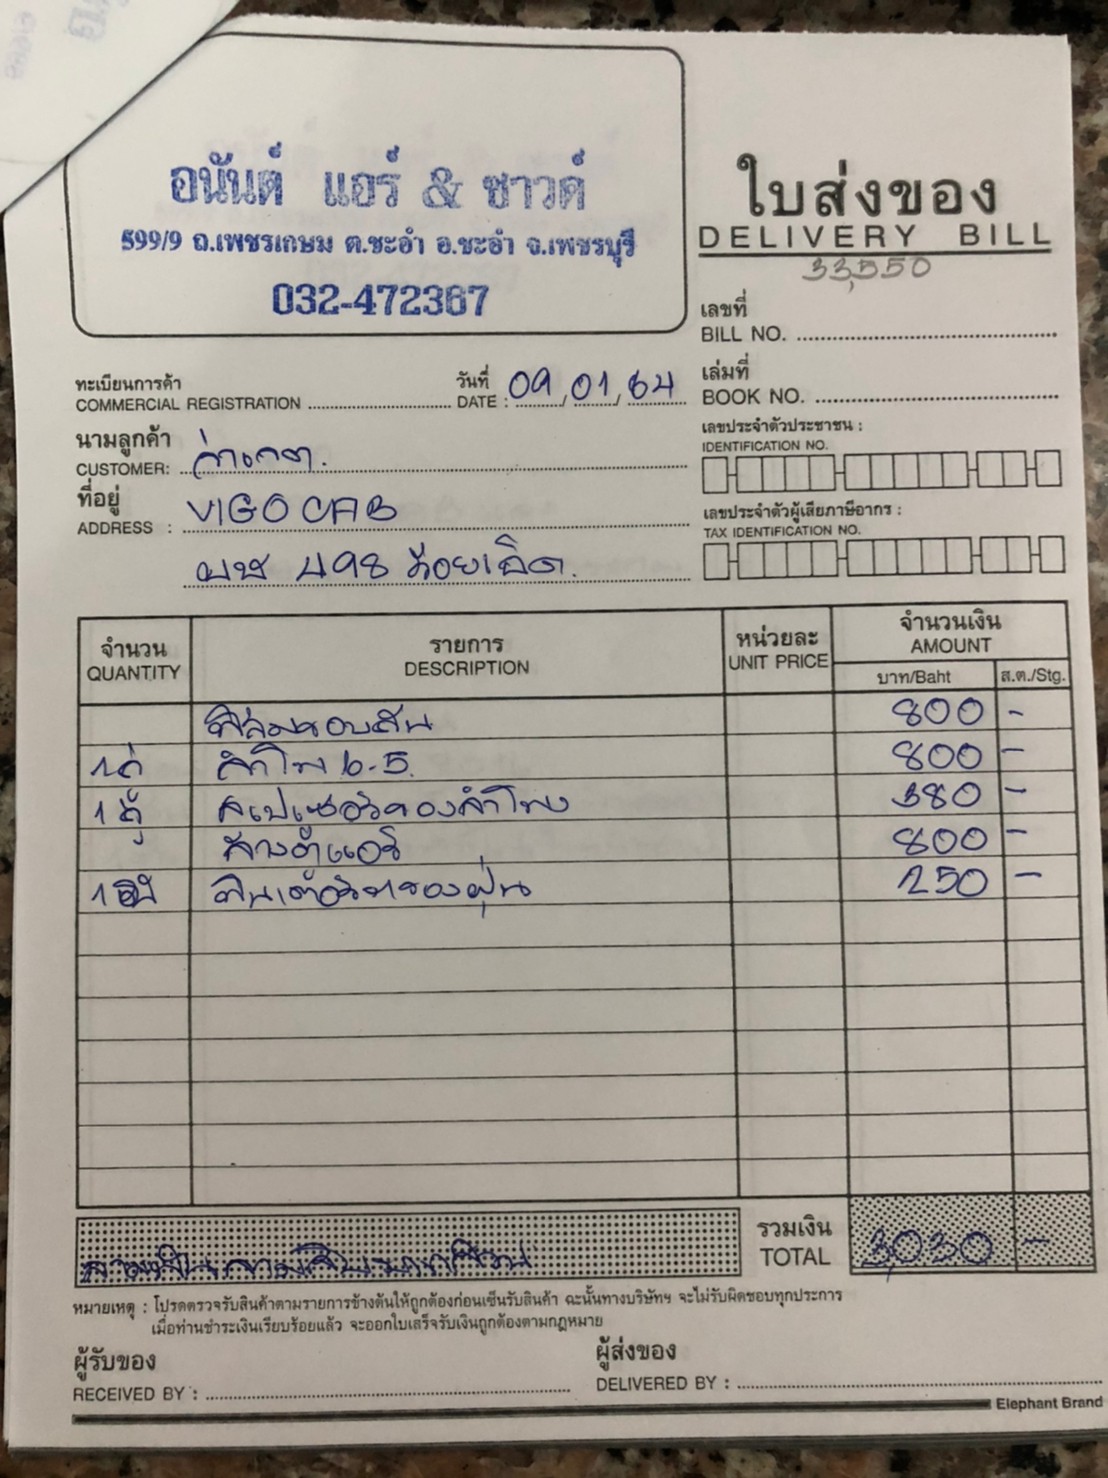 อนันต์ แอร์ & ซาวด์
599/9 ถ.เพชรเกษม ต.ชะอำ อ.ชะอำ จ.เพชรบุรี
032-472367
ใบส่งของ
DELIVERY BILL
33,550
เลขที่
BILL NO.
ทะเบียนการค้า
COMMERCIAL REGISTRATION
วันที่
DATE : 09, 01, 64
เล่มที่
BOOK NO.
นามลูกค้า
CUSTOMER:
เลขประจำตัวประชาชน :
IDENTIFICATION NO.
ที่อยู่
ADDRESS : VIGO CAB
เลขประจำตัวผู้เสียภาษีอากร :
TAX IDENTIFICATION NO.
498 ร้อยเอ็ด.
จำนวน
QUANTITY
รายการ
DESCRIPTION
หน่วยละ
UNIT PRICE
จำนวนเงิน
AMOUNT
บาท/Baht
ส.ต./Stg.
ฟิล์มรอบคัน 800 -
1 คู่ ลำโพง 6.5 800 -
1 คู่ สเปเซอร์รองลำโพง 380 -
ล้างตู้แอร์ 800 -
1 ฟิลเตอร์กรองฝุ่น 250 -
รวมเงิน
TOTAL 3,030 -
สามพันสามสิบบาทถ้วน
หมายเหตุ : โปรดตรวจรับสินค้าตามรายการข้างต้นให้ถูกต้องก่อนเซ็นรับสินค้า ฉะนั้นทางบริษัทฯ จะไม่รับผิดชอบทุกประการ
เมื่อท่านชำระเงินเรียบร้อยแล้ว จะออกใบเสร็จรับเงินถูกต้องตามกฎหมาย
ผู้รับของ
RECEIVED BY :
ผู้ส่งของ
DELIVERED BY :
Elephant Brand